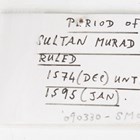 PERIOD OF
SULTAN MURAD
RULED
1574 (DEC) UNT
1595 (JAN).
090330-SM